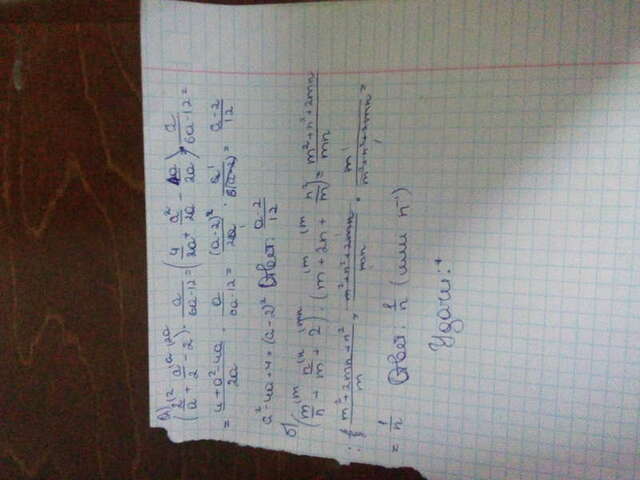 а) (2/a + a/2 - 2) · a/6a-12 = (4/2a + a²/2a - 4a/2a) · a/6a-12 =
= 4+a²-4a/2a · a/6a-12 = (a-2)²/2a · a/6(a-2) = a-2/12
a²-4a+4=(a-2)² Ответ: a-2/12
б) (m/n + n/m + 2) : (m + 2n + n²/m) = m²+n²+2mn/mn
: m²+2mn+n²/m = m²+n²+2mn/mn · m/m²+n²+2mn =
= 1/n Ответ: 1/n (или n⁻¹)
Удачи:*